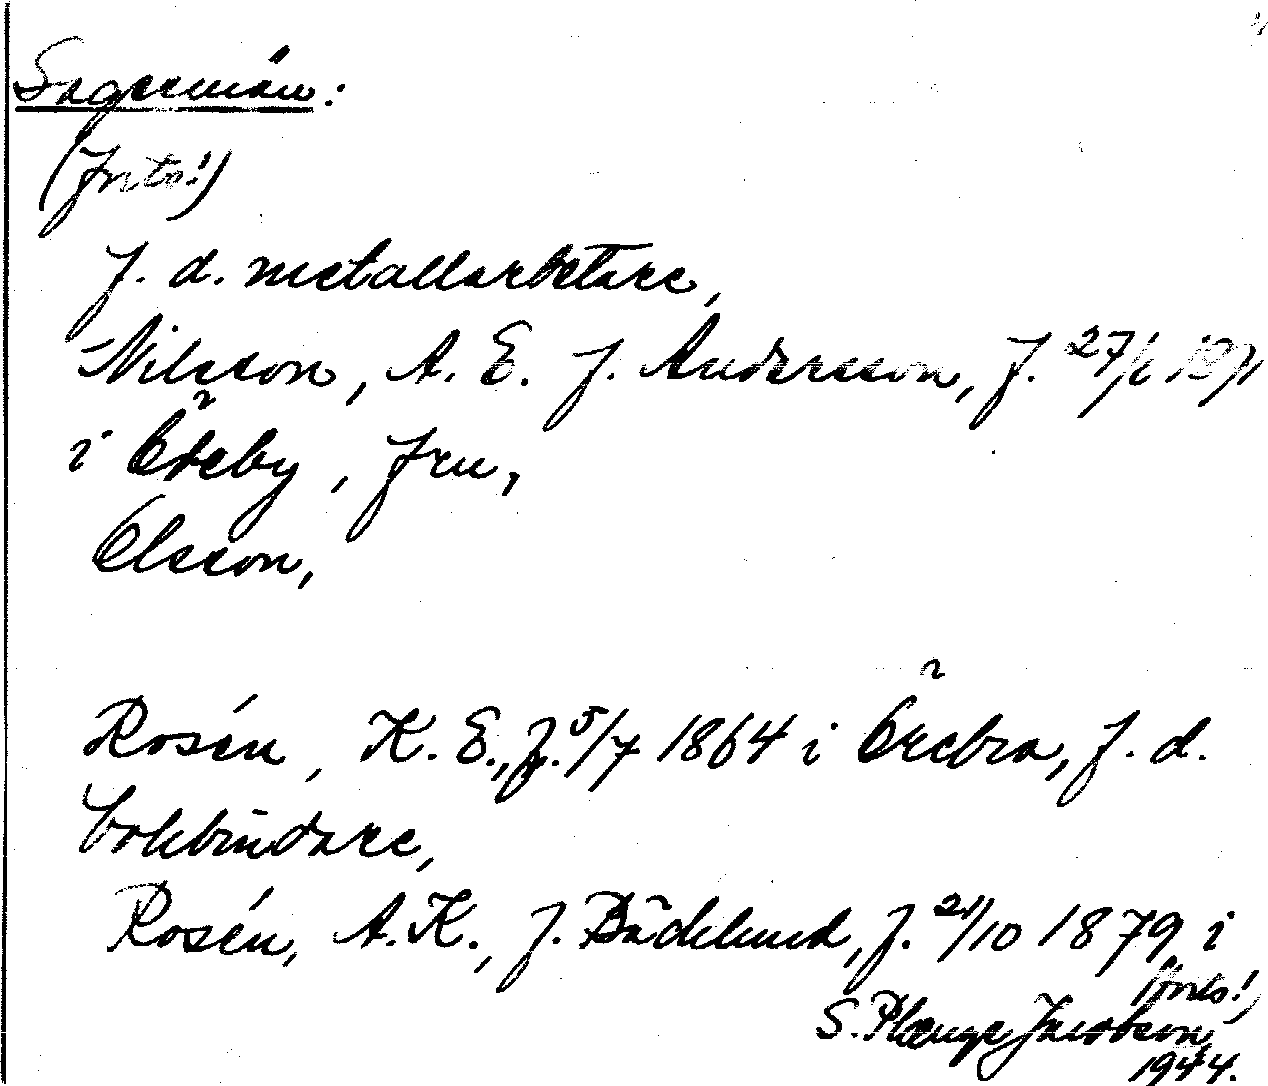 Sagesmän:
(forts!)
f. d. metallarbetare,
Nilsson, A. E. f. Andersson, f. 27/1 1871
i Öreby, fru,
Olsson,
Rosén, K. E., f. 5/7 1864 i Örebro, f. d.
bokbindare,
Rosén, A. K., f. Bäcklund, f. 21/10 1879 i
(forts!)
S. Plænge Jacobson
1944.